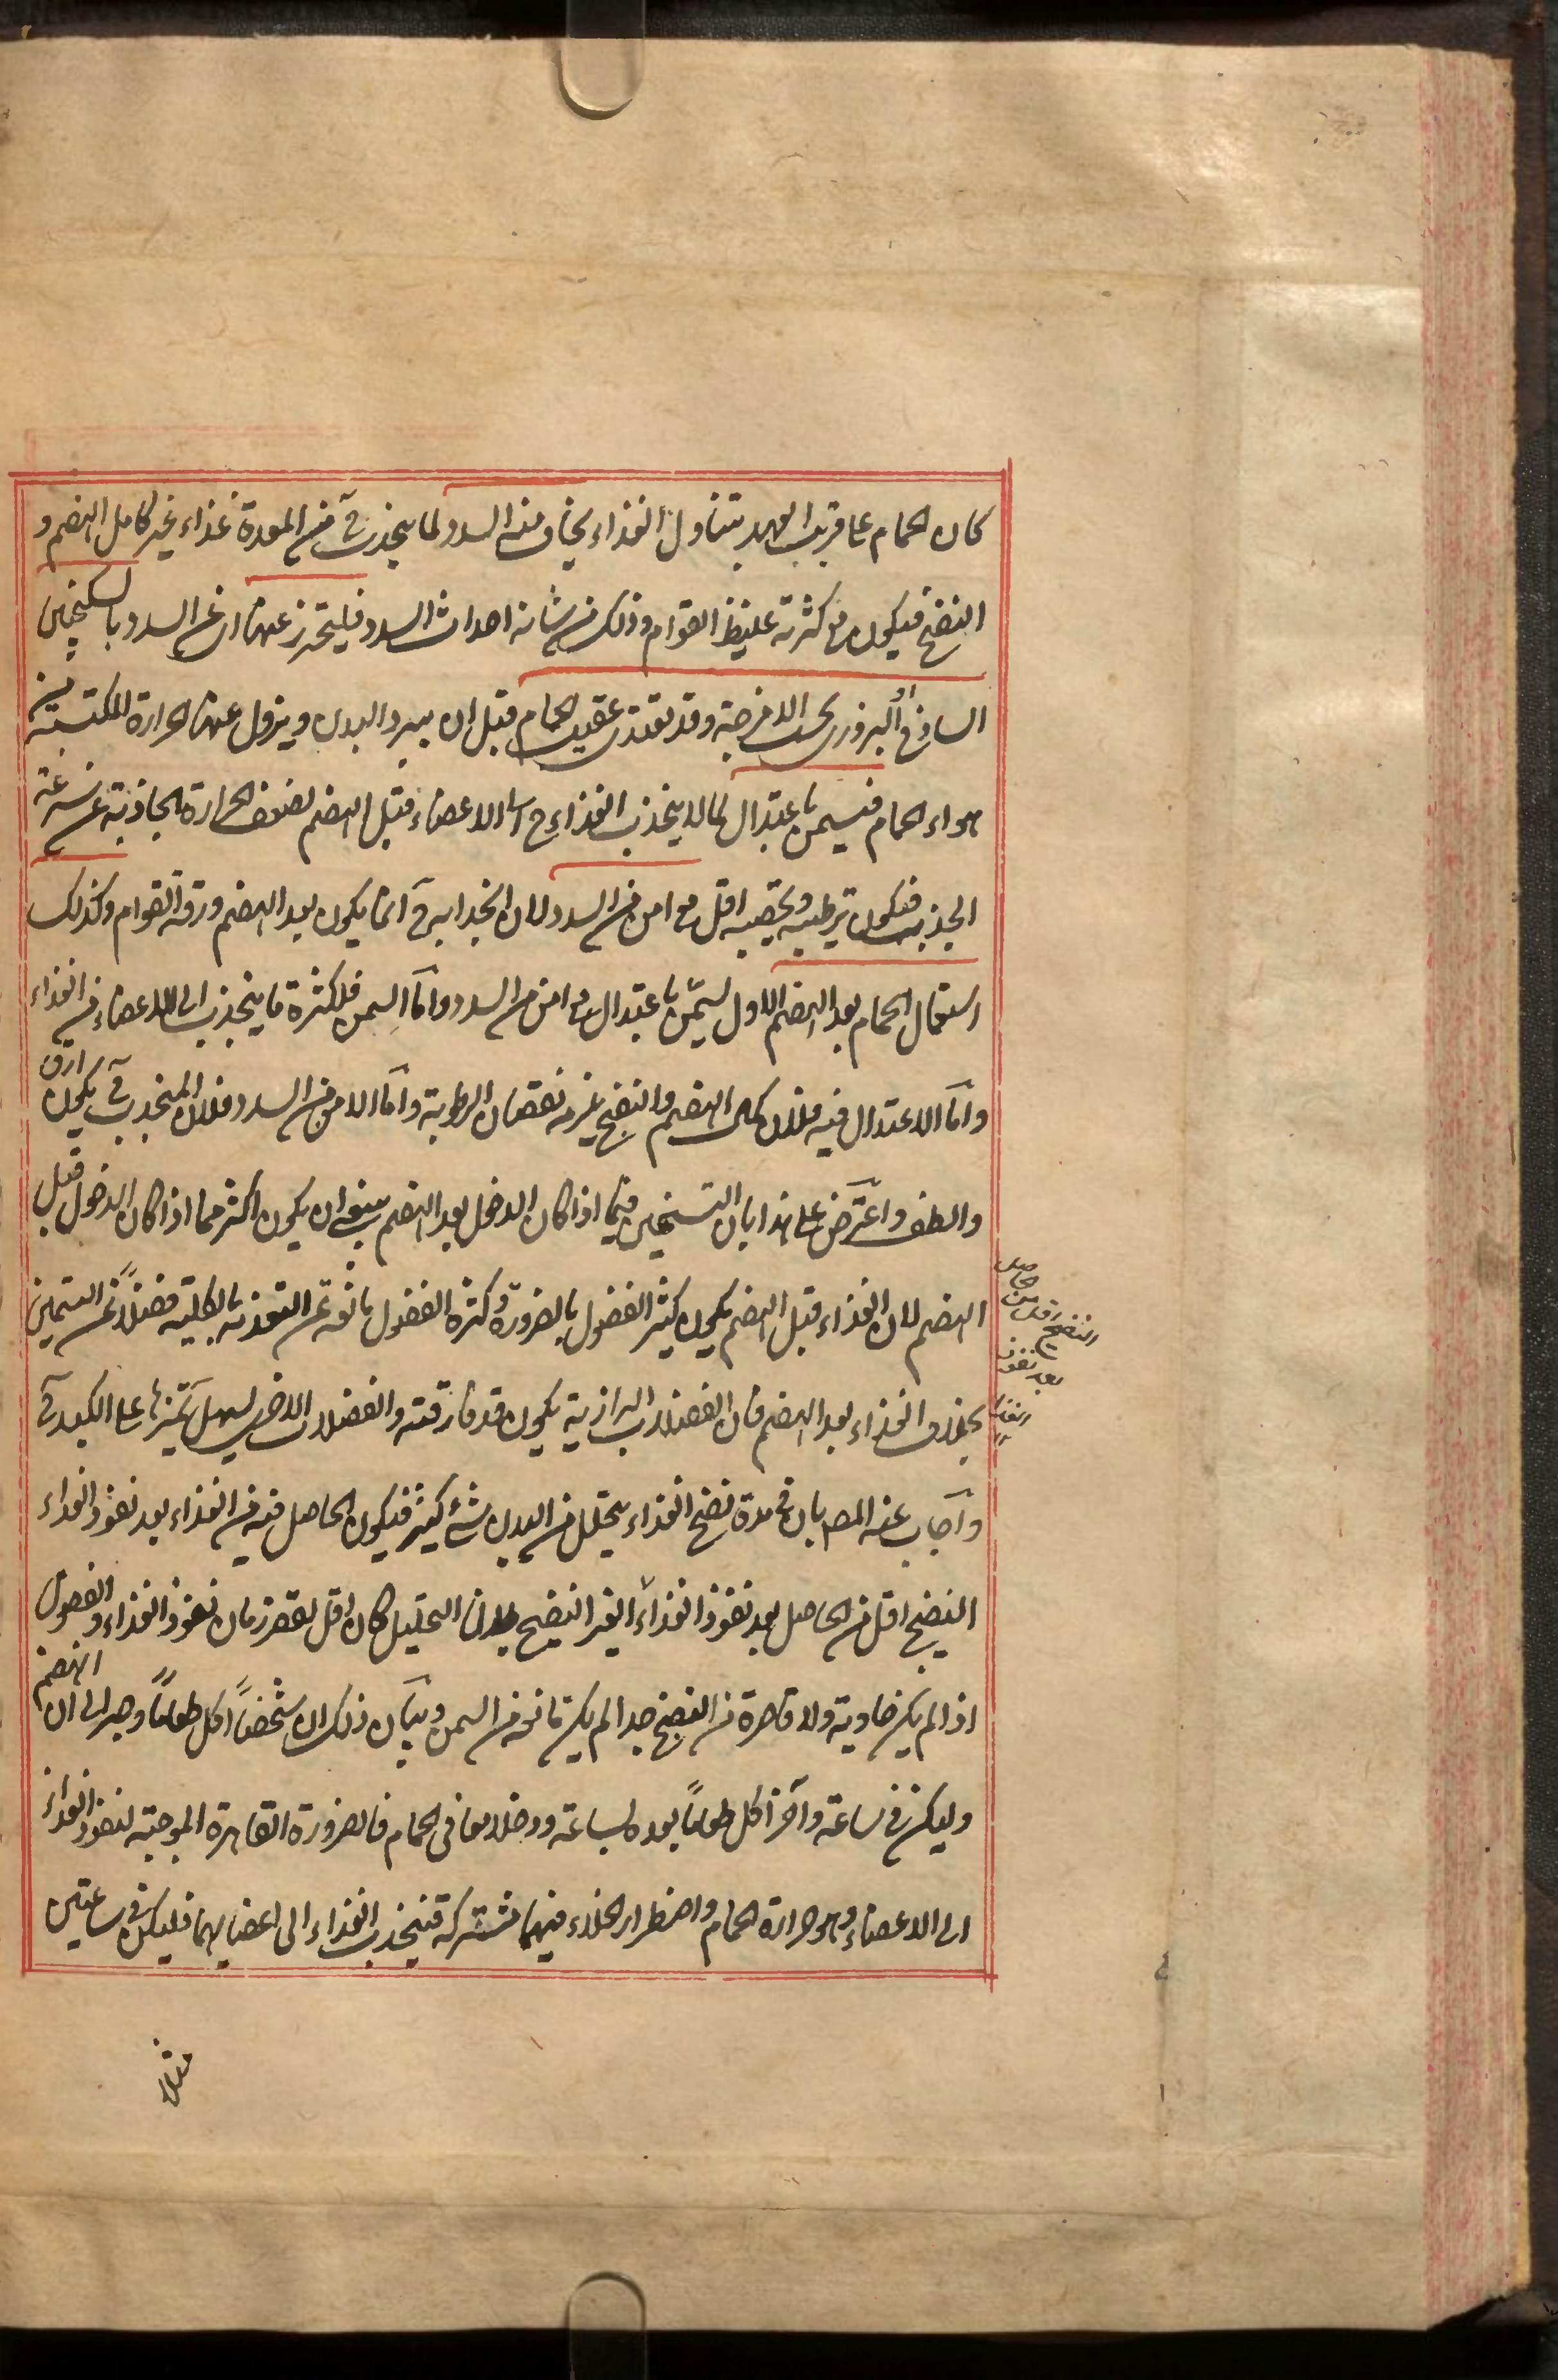 كان الحمام علی قریب العهد بتناول الغذاء یخاف منه السدد لما ینجذب ح من المعدة غذاء غیر کامل الهضم و
النضج فیکون مع کثرته غلیظ القوام وذلک من شانه احداث السدد فلیتحرز عنها ای عن السدد بالسکنجبین
الساذج او البزوری بحسب الامزجة وقد یغتذی عقیب الحمام قبل ان یبرد البدن ویزول عنه الحرارة المکتسبة من
هواء الحمام فیسمن باعتدال لما لا ینجذب الغذاء ح الی الاعضاء قبل الهضم لضعف الحرارة الجاذبة عن سرعة
الجذب فیکون ترطیبه وتخصیبه اقل مع امن من السدد لان انجذابه ح انما یکون بعد الهضم ورقة القوام وکذلک
استعمال الحمام بعد الهضم الاول یسمن باعتدال مع امن من السدد واما السمن فلکثرة ما ینجذب الی الاعضاء من الغذاء
واما الاعتدال فیه فلان کمال الهضم والنضج یلزمه نقصان الرطوبة واما الامن من السدد فلان المنجذب ح یکون ارق
والطف واعترض علی هذا بان التسمین فیما اذا کان الدخول بعد الهضم ینبغی ان یکون اکثر مما اذا کان الدخول قبل
الهضم لان الغذاء قبل الهضم یکون کثیر الفضول بالضرورة وکثرة الفضول مانعة عن التغذیة بالکلیة فضلاً عن التسمین
بخلاف الغذاء بعد الهضم فان الفضلات البرازیة یکون قد فارقته والفضلات الاخری یسهل تمیزها علی الکبد ح
واجاب عنه المص بان فی مدة نضج الغذاء یتحلل من البدن شئ کثیر فیکون الحاصل فیه من الغذاء بعد نفوذ الغذاء
النضیج اقل من الحاصل بعد نفوذ الغذاء الغیر النضیج لان التحلیل کان اقل لقصر زمان نفوذ الغذاء والفضول
اذا لم یکن ضاویة ولا قاصرة من النضج جدا لم یکن مانعة من السمن وبیان ذلک ان شخصاً اکل طعاماً وصبر الی ان انهضم
ولیکن فی ساعة وآخر اکل طعاماً بعده بساعة ودخلا معا فی الحمام فالضرورة القاهرة الموجبة لنفوذ الغذاء
الی الاعضاء وهو حرارة الحمام واضطرار الخلاء فیهما مشترکة فینجذب الغذاء الی اعضایهما فلیکن فی ساعتین
حاصل
النضیج اقل من
بعد نفوذ
الغذاء
مثلا